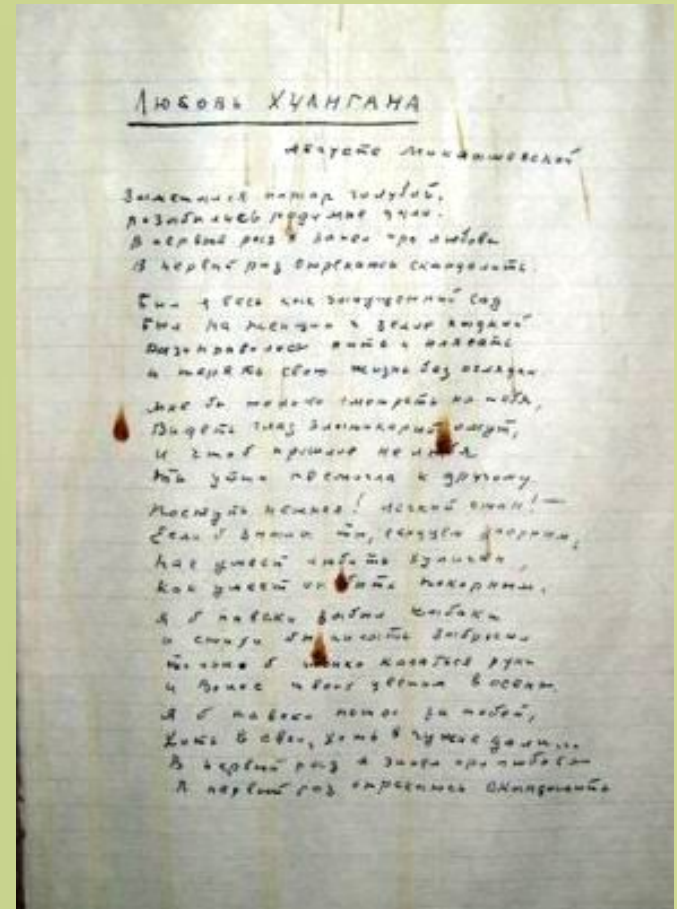 ЛЮБОВЬ ХУЛИГАНА
Августе Миклашевской
Заметался пожар голубой,
Позабылись родимые дали.
В первый раз я запел про любовь
В первый раз отрекаюсь скандалить.
Был я весь как запущенный сад
Был на женщин и зелие падкий
Разонравилось пить и плясать
и терять свою жизнь без оглядки.
Мне бы только смотреть на тебя,
Видеть глаз златокарий омут,
и чтоб прошлое не любя
Ты уйти не смогла к другому
Поступь нежная! легкий стан! —
Если б знала ты, сердцем упорным,
Как умеет любить хулиган,
Как умеет он быть покорным.
Я б навеки забыл кабаки
и стихи бы писать забросил
только б тонко касаться руки
и волос твоих цветом в осень.
Я б навеки пошел за тобой,
Хоть в свои, хоть в чужие дали...
В первый раз я запел про любовь
В первый раз отрекаюсь скандалить